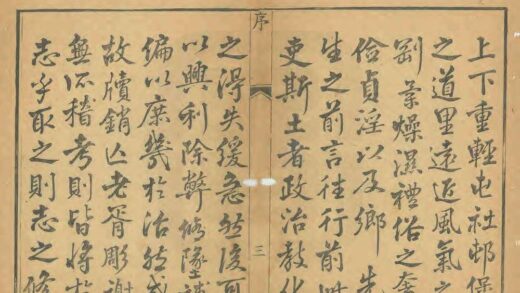 上下重輕屯社邨保
之道里遠近風氣之
剛柔燥濕禮俗之奢
儉貞淫以及鄉先
生之前言往行前
吏斯土者政治教化
序
三
之淂失緩急然後可
以興利除弊修墜
編以庶幾於治然
故牘銷亾老胥彫謝
無所稽考則皆將於
志乎取之則志之脩